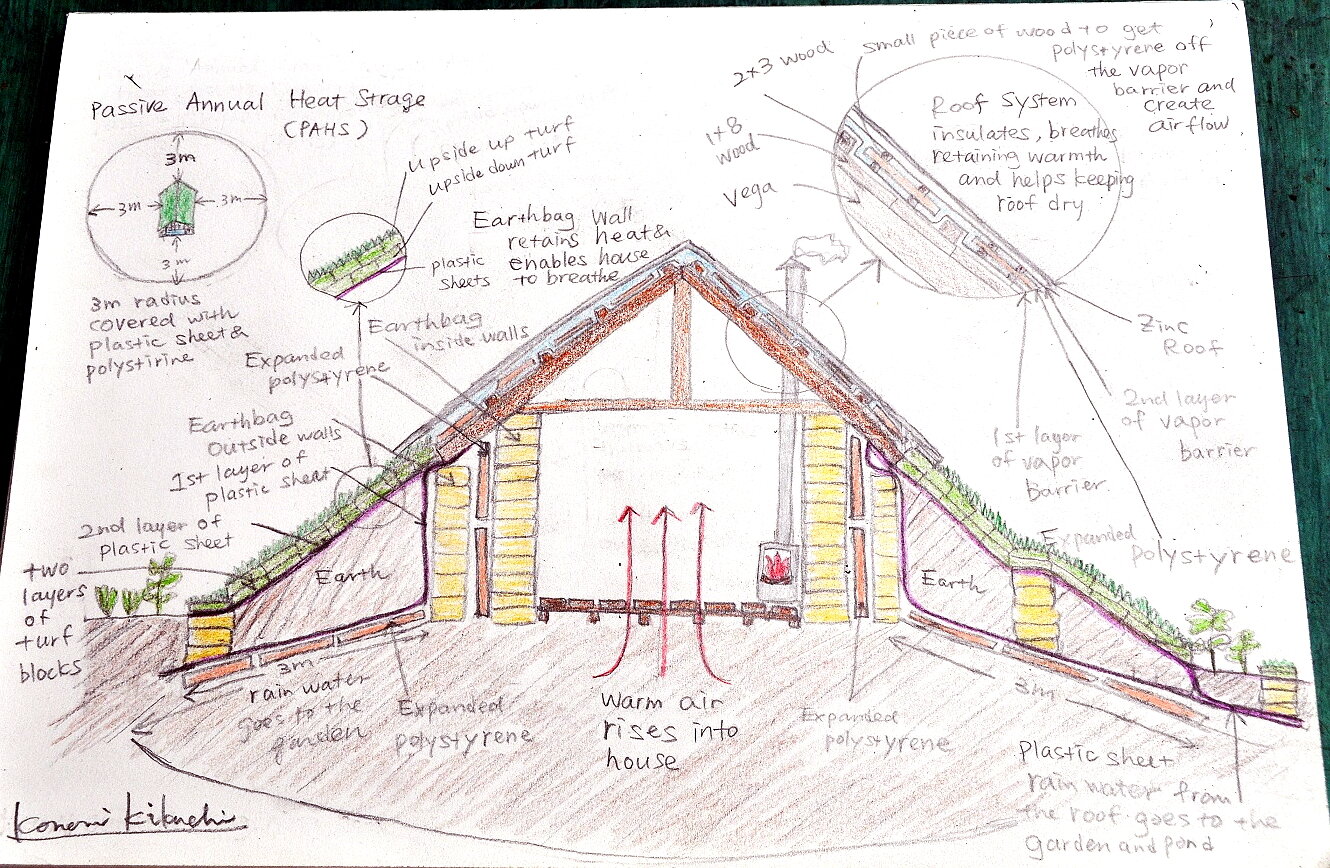 Passive Annual Heat Strage
(PAHS)
3m
3m
3m
3m
3m radius
covered with
plastic sheet &
polystirine
upside up turf
upside down turf
plastic
sheets
Earthbag Wall
retains heat &
enables house
to breathe
Earthbag
inside walls
Expanded
polystyrene
Earthbag
outside walls
1st layer of
plastic sheet
2nd layer of
plastic sheet
two
layers
of
turf
blocks
2x3 wood
1+8
wood
Vega
small piece of wood to get
polystyrene off
the vapor
barrier and
create
airflow
Roof System
insulates, breathes
retaining warmth
and helps keeping
roof dry
Zinc
Roof
2nd layer
of vapor
barrier
1st layer
of vapor
barrier.
Expanded
polystyrene
Earth
Earth
3m
rain water
goes to the
garden
Expanded
polystyrene
Warm air
rises into
house
Expanded
polystyrene
3m
Plastic sheet
rain water from
the roof goes to the
garden and pond
Konomi Kikuchi